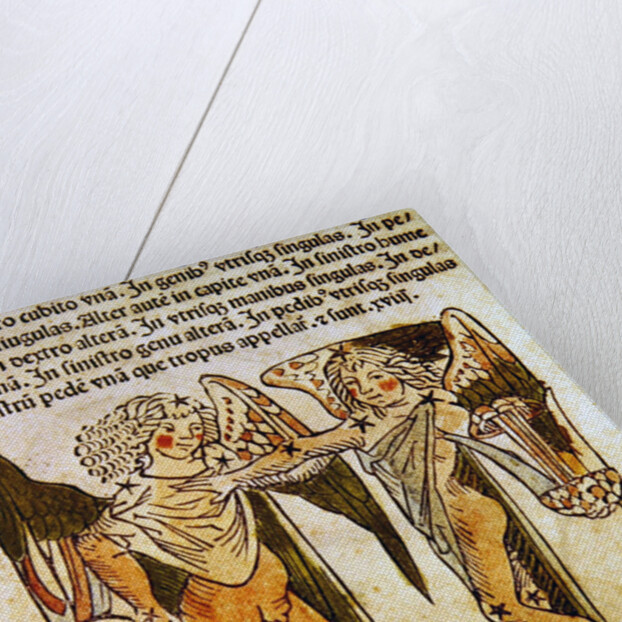 ro cubito vnā. In genib⁹ vtrisqꝫ singulas. In pe/
siugulas. Alter autē in capite vnā. In sinistro hume
dextro alterā. In vtrisqꝫ manibus singulas. In de/
nā. In sinistro genu alterā. In pedib⁹ vtrisqꝫ singulas
strū pedē vnā que tropus appellat̄. ⁊ sunt. xviij.